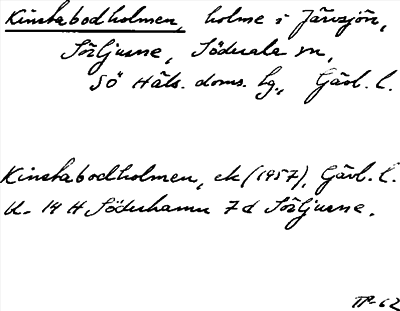 Kinstabodholmen, holme i Järvsjön,
Sörljusne, Söderala sn,
SÖ Häls. doms. tg., Gävl. l.
Kinstabodholmen, ek (1957), Gävl. l.
U- 14 H Söderhamn 7 d Sörljusne.
TP-62